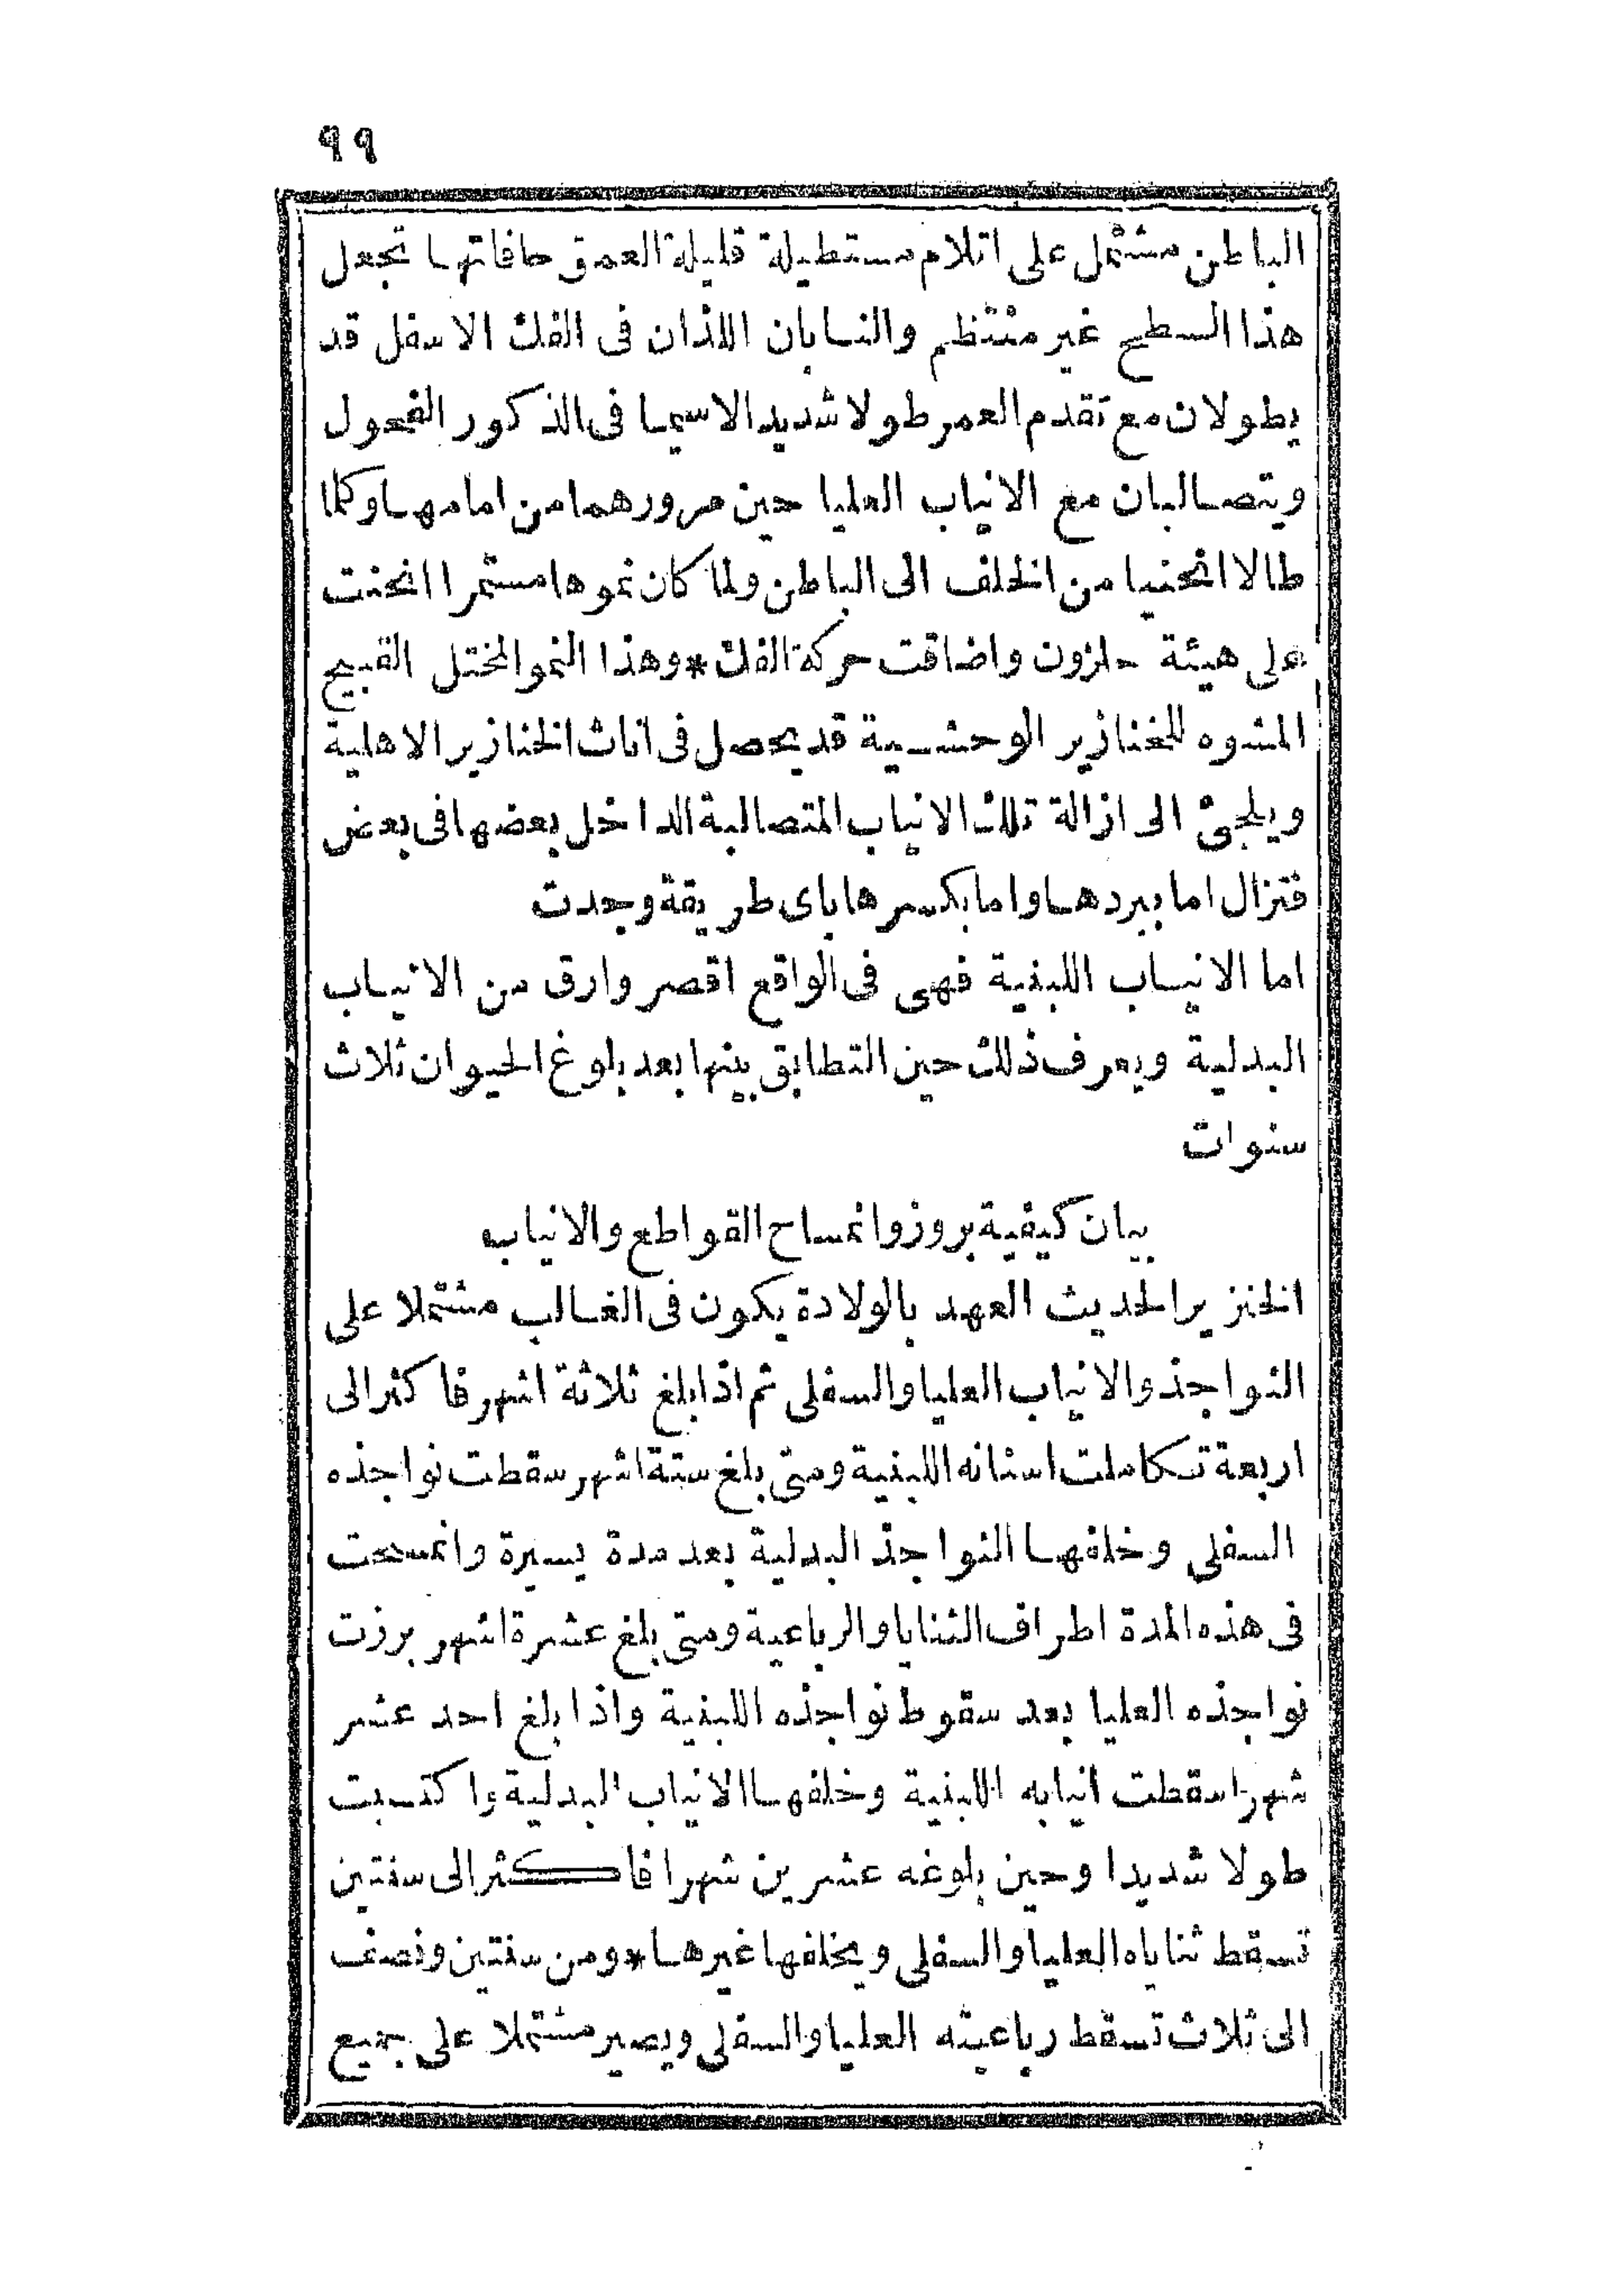 ٩٩
الباطن مشتمل على اتلام مستطيلة قليلة العمق حافاتها تجعل
هذا السطح غير منتظم والنابان اللذان فى الفك الاسفل قد
يطولان مع تقدم العمر طولا شديدا لاسيما فى الذكور الفحول
ويتصالبان مع الانياب العليا حين مرورهما من امامها وكلما
طالا انحنيا من الخلف الى الباطن ولما كان نموها مستمرا انحنت
على هيئة حلزون واضاقت حركة الفك * وهذا النمو المختل القبيح
المشوه للخنازير الوحشية قد يحصل فى اناث الخنازير الاهلية
ويلجئ الى ازالة تلك الانياب المتصالبة الداخل بعضها فى بعض
فتزال اما ببردها واما بكسرها باى طريقة وجدت
اما الانياب اللبنية فهى فى الواقع اقصر وارق من الانياب
البدلية ويعرف ذلك حين التطابق بينها بعد بلوغ الحيوان ثلاث
سنوات
بيان كيفية بروز وانمساح القواطع والانياب
الخنزير الحديث العهد بالولادة يكون فى الغالب مشتملا على
النواجذ والانياب العليا والسفلى ثم اذا بلغ ثلاثة اشهر فاكثر الى
اربعة تكاملت اسنانه اللبنية ومتى بلغ ستة اشهر سقطت نواجذه
السفلى وخلفها النواجذ البدلية بعد مدة يسيرة وانمسحت
فى هذه المدة اطراف الثنايا والرباعية ومتى بلغ عشرة اشهر برزت
نواجذه العليا بعد سقوط نواجذه اللبنية واذا بلغ احد عشر
شهرا سقطت انيابه اللبنية وخلفها الانياب البدلية واكتسبت
طولا شديدا وحين بلوغه عشرين شهرا فاكثر الى سنتين
تسقط ثناياه العليا والسفلى ويخلفها غيرها * ومن سنتين ونصف
الى ثلاث تسقط رباعيته العليا والسفلى ويصير مشتملا على جميع